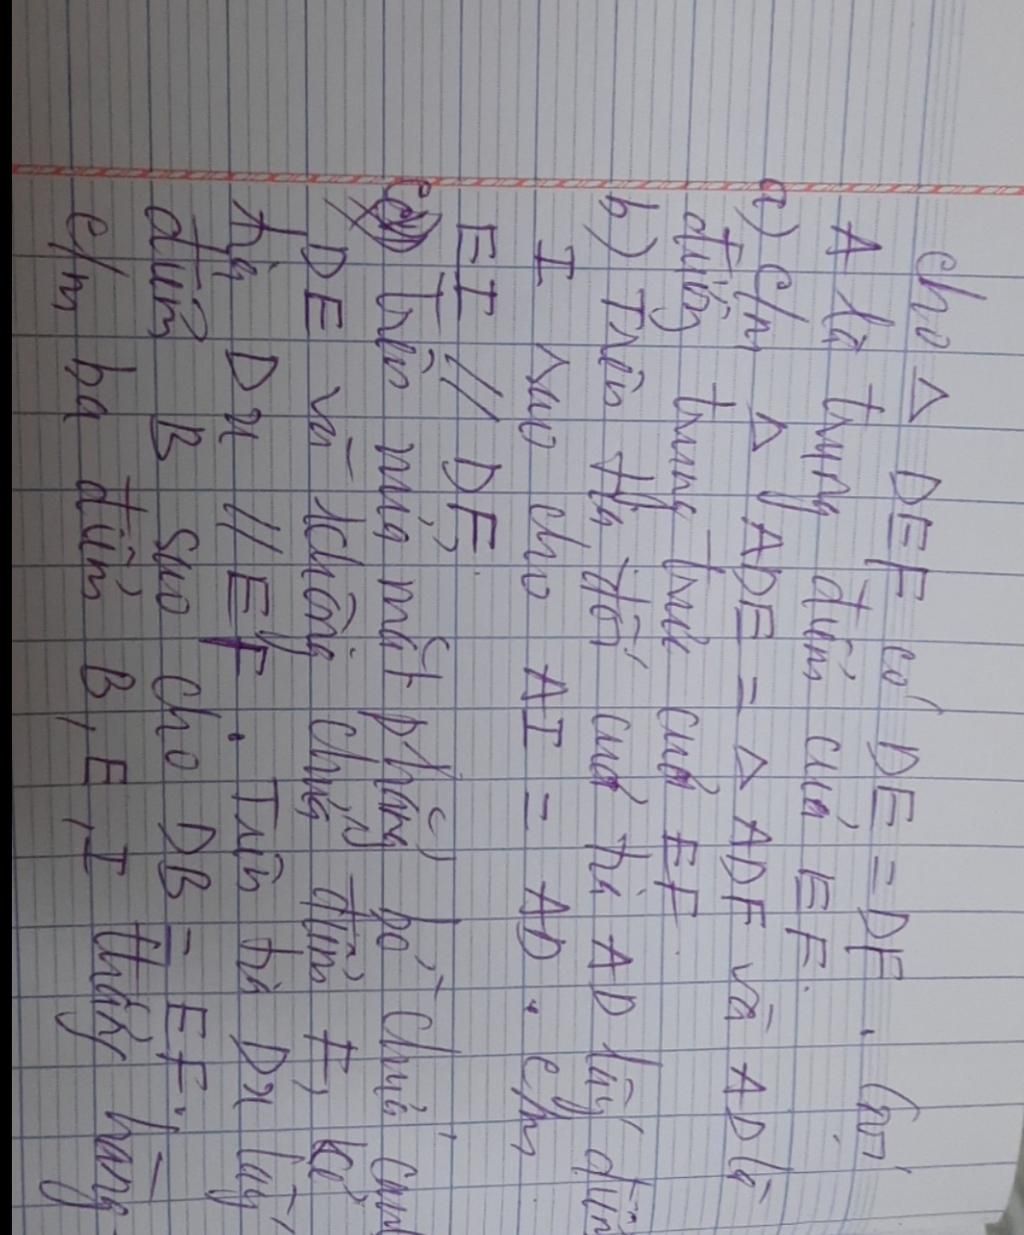 Cho Δ DEF có DE = DF. Gọi
A là trung điểm của EF.
a) C/m Δ ADE = Δ ADF và AD là
đường trung trực của EF
b) Trên tia đối của tia AD lấy điểm
I sao cho AI = AD. C/m
EI // DF.
c) Trên nửa mặt phẳng bờ chứa cạnh
DE và không chứa điểm F, kẻ
tia Dx // EF. Trên tia Dx lấy
điểm B sao cho DB = EF.
C/m ba điểm B, E, I thẳng hàng.